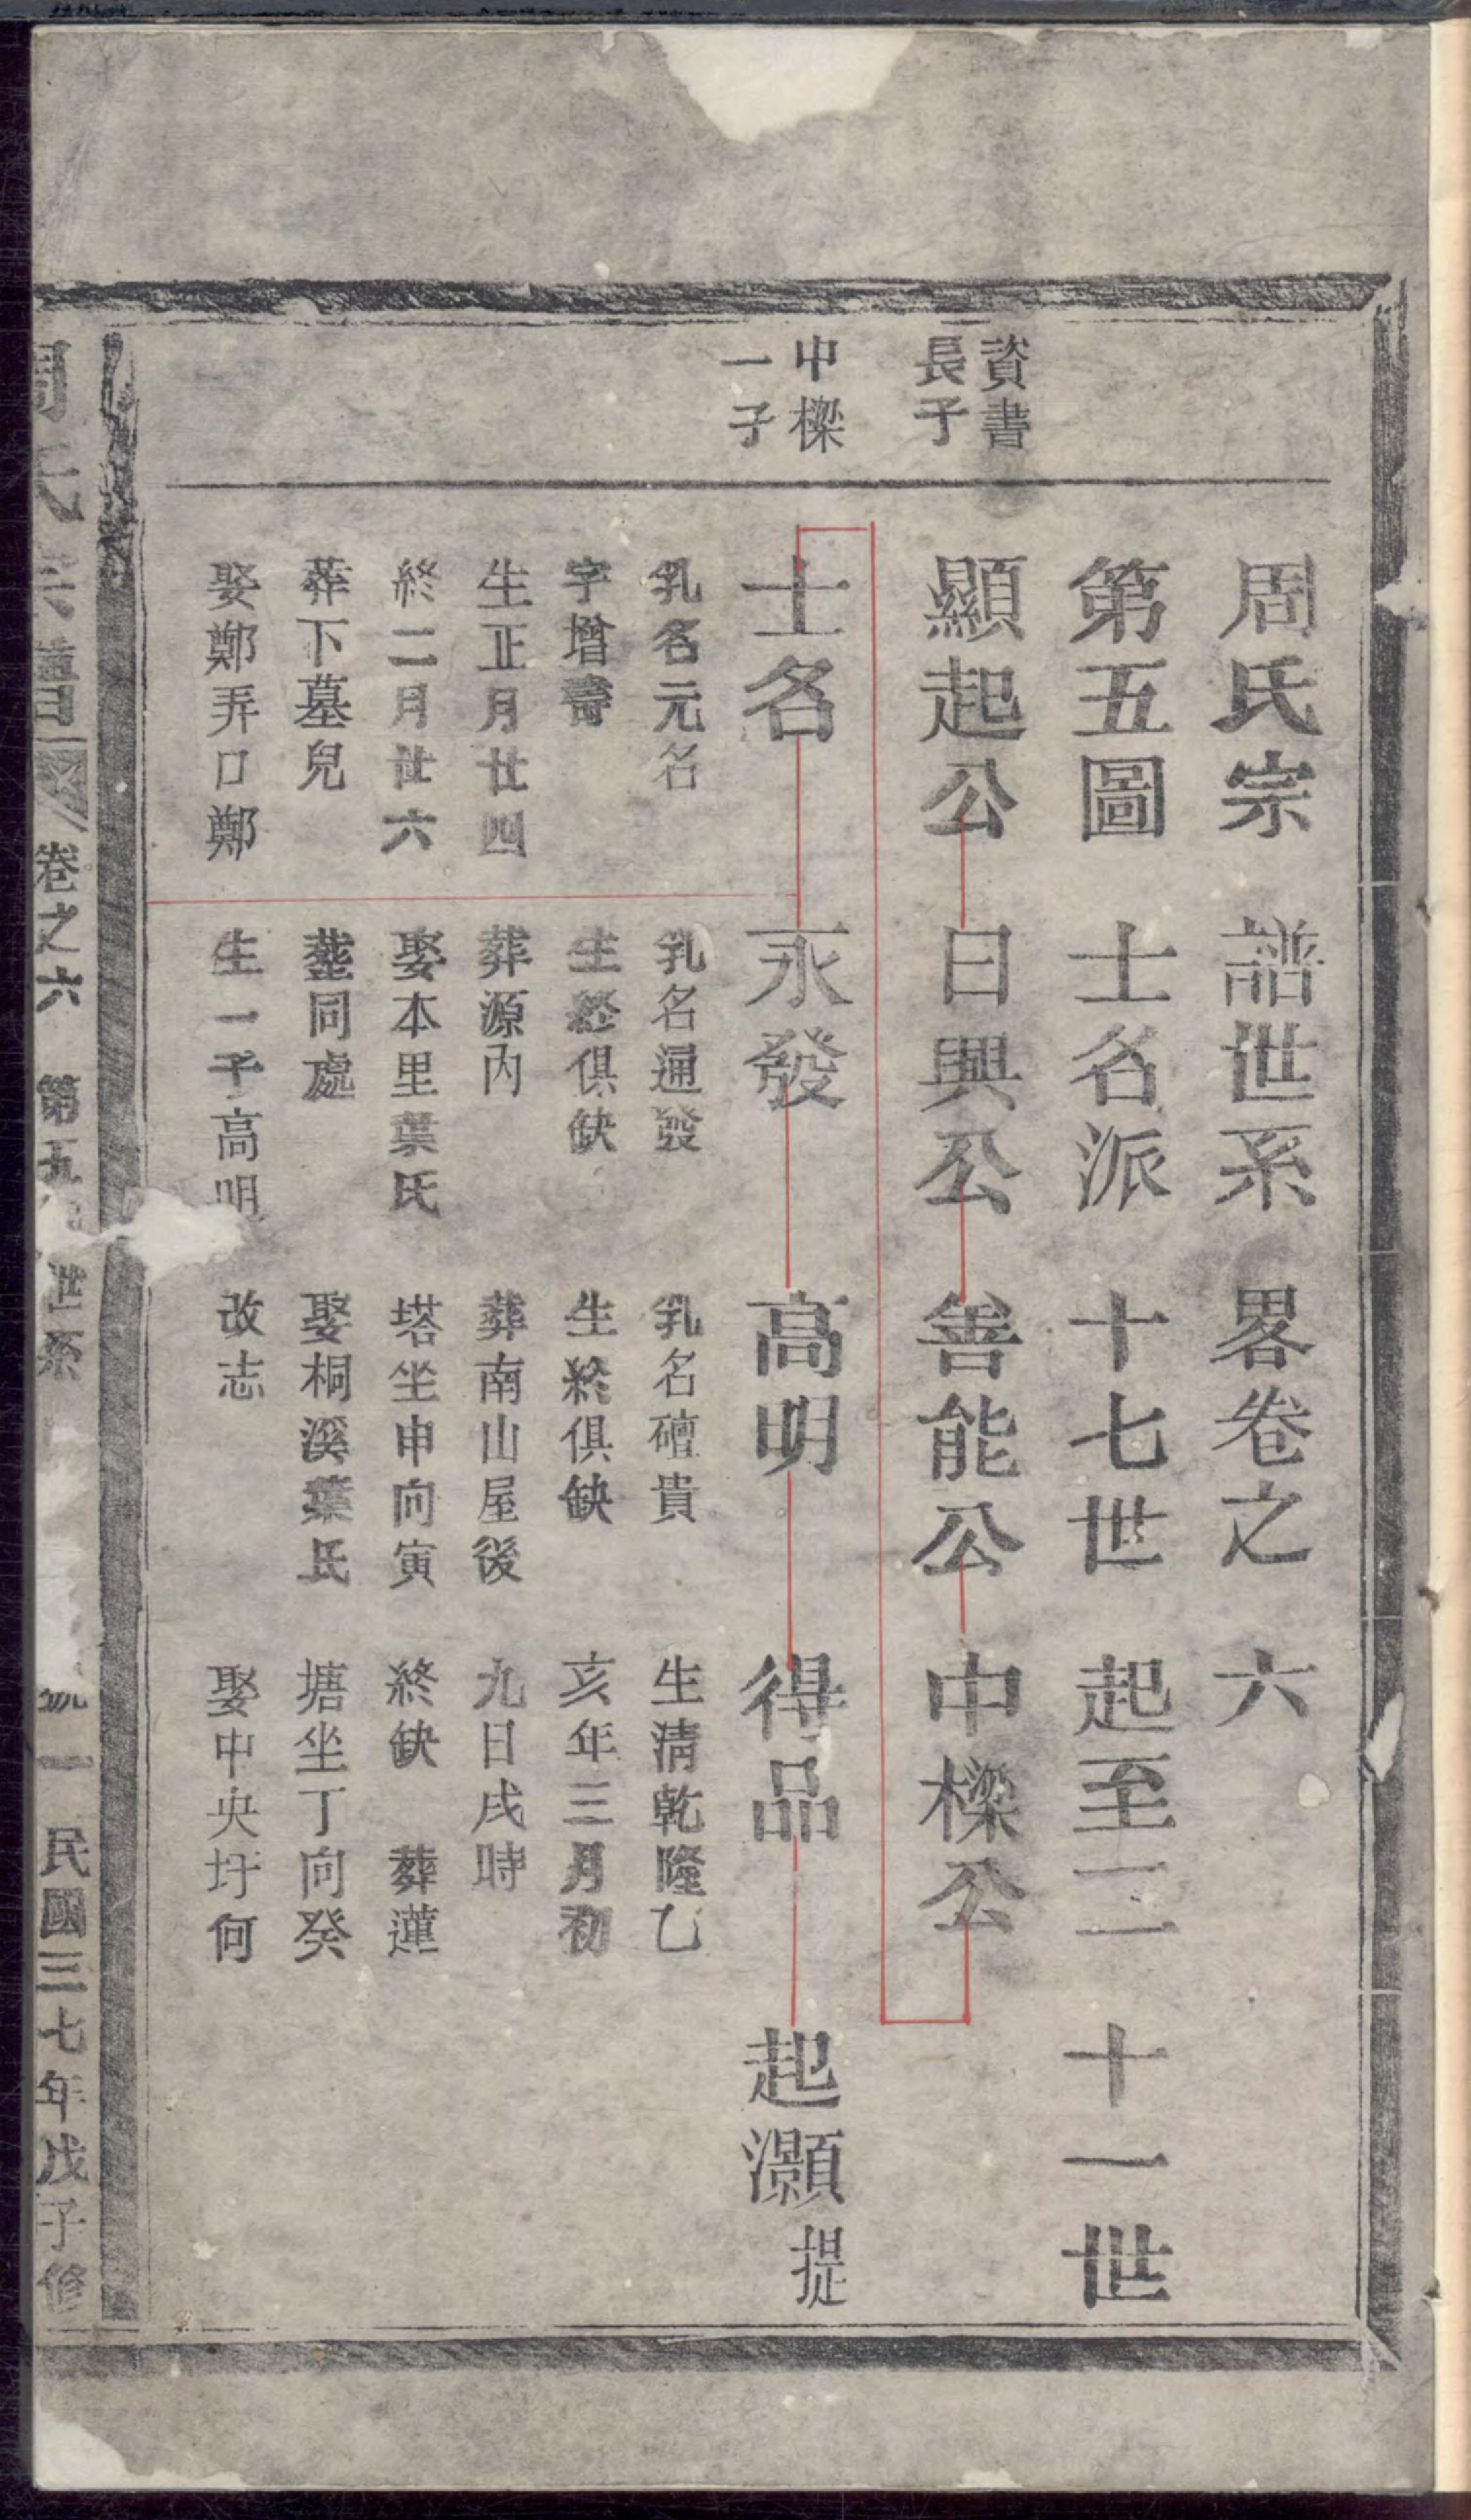 周氏宗譜世系畧卷之六
第五圖士名派十七世起至二十一世
資書
長子
顯起公 日興公 善能公 中樑公
中樑
一子
士名 永發 高明 得品 起灝 提
乳名元名
字增壽
生正月廿四
終二月廿六
葬下墓兒
娶鄭弄口鄭
乳名通發
生終俱缺
葬源內
娶本里葉氏
塟同處
生一子高明
乳名礶貴
生終俱缺
葬南山屋後
塔坐申向寅
娶桐溪葉氏
改志
生清乾隆乙
亥年三月初
九日戌時
終缺 葬蓮
塘坐丁向癸
娶中央圩何
周氏宗譜 卷之六 第五 世系 一 民國三七年戊子修